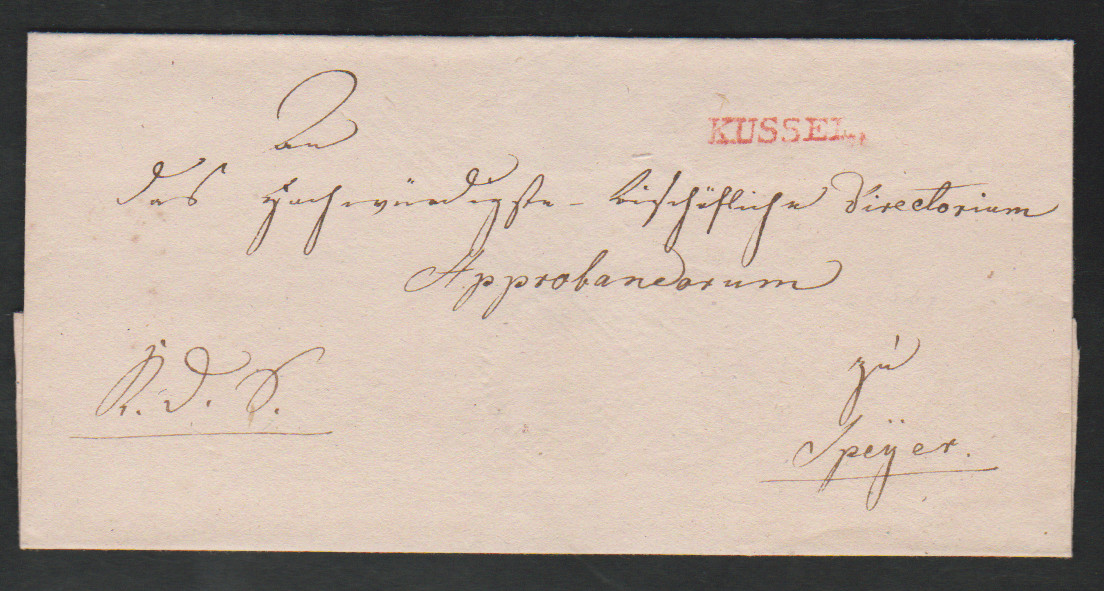 KUSSEL.
An
das Hochwürdigste - bischöfliche Directorium
Approbandorum
R. d. S.
zu
Speÿer.